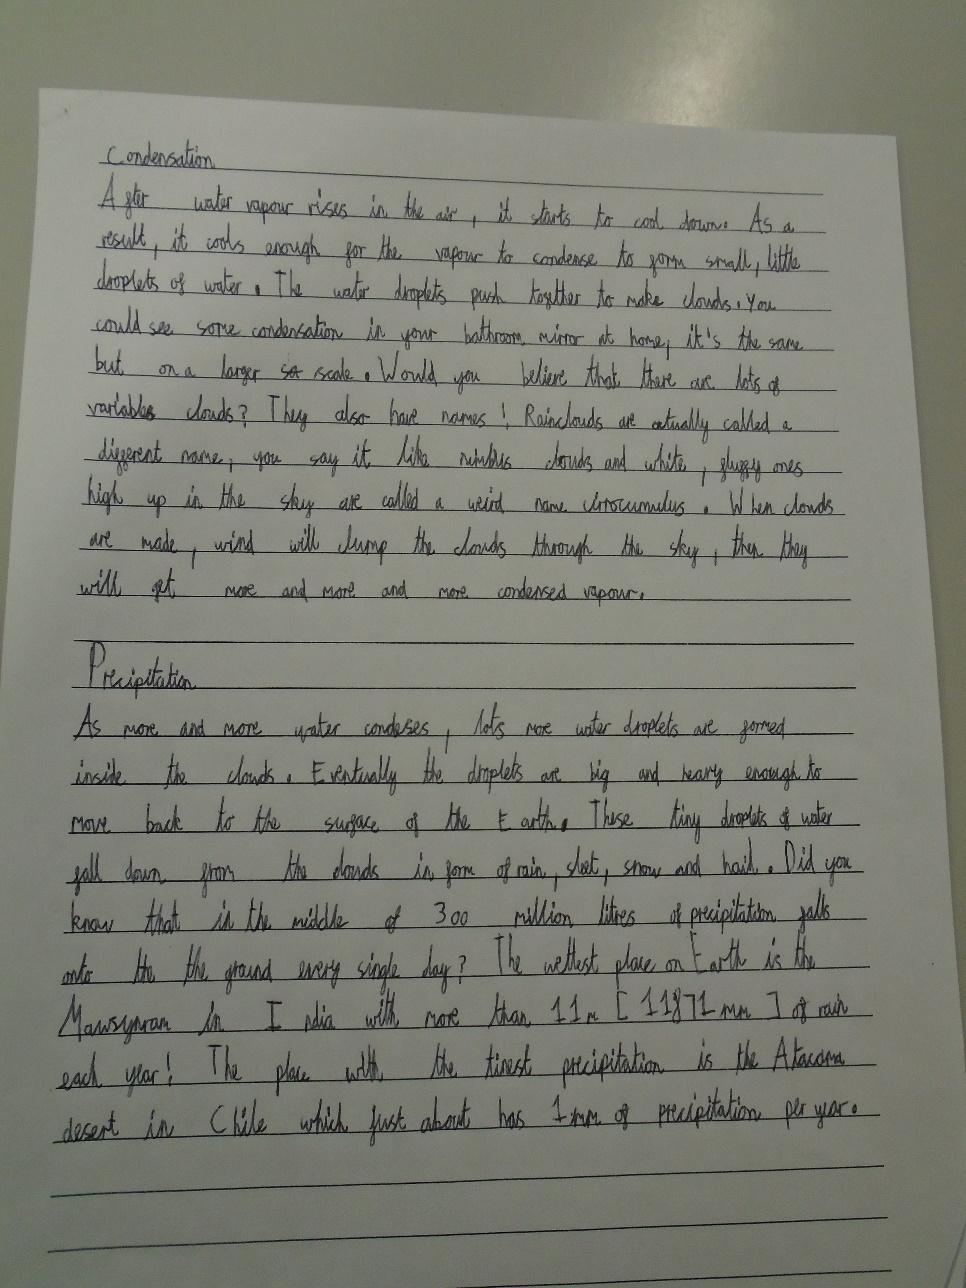 Condensation
After water vapour rises in the air, it starts to cool down. As a
result, it cools enough for the vapour to condense to form small, little
droplets of water. The water droplets push together to make clouds. You
could see some condensation in your bathroom mirror at home, it's the same
but on a larger scale. Would you believe that there are lots of
variables clouds? They also have names! Rainclouds are actually called a
different name, you say it like nimbus clouds and white, fluffy ones
high up in the sky are called a weird name cirrocumulus. When clouds
are made, wind will clump the clouds through the sky, then they
will get more and more and more condensed vapour.
Precipitation
As more and more water condeses, lots more water droplets are formed
inside the clouds. Eventually the droplets are big and heavy enough to
move back to the surface of the Earth. These tiny droplets of water
fall down from the clouds in form of rain, sleet, snow and hail. Did you
know that in the middle of 300 million litres of precipitation falls
onto the the ground every single day? The wettest place on Earth is the
Mawsynram in India with more than 11m [11871mm] of rain
each year! The place with the tinest precipitation is the Atacama
desert in Chile which just about has 1mm of precipitation per year.